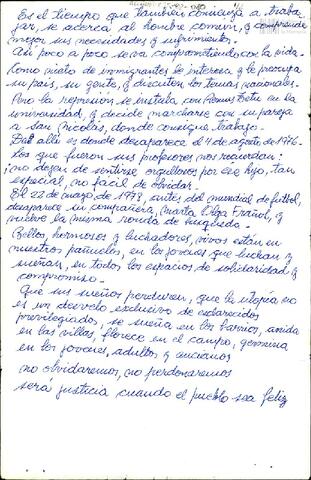 Es el tiempo que también comienza a traba
jar, se acerca al hombre común, y comprende
mejor sus necesidades y sufrimientos.
Así poco a poco se va comprometiendo con la vida.
Como nieto de inmigrantes le interesa y le preocupa
su país, su gente, y discuten los temas nacionales.
Pero la represión se instala con Remus Tetu en la
universidad, y decide marcharse con su pareja
a San Nicolás, donde consigue trabajo.
De allí es donde desaparece el 4 de agosto de 1976.
Los que fueron sus profesores nos recuerdan:
¡no dejen de sentirse orgullosos por ese hijo, tan
especial, no fácil de olvidar.
El 22 de marzo, de 1978, antes del mundial de futbol,
desaparece su compañera, Marta Olga Frañol, y
vuelve la misma ronda de búsqueda.
Bellos, hermosos y luchadores, vivos están en
nuestros pañuelos, en los jóvenes que luchan y
sueñan, en todos los espacios de solidaridad y
compromiso.
Que sus sueños perduren, que la utopía no
es un desvelo exclusivo de esclarecidos
previlegiados, se sueña en los barrios, anida
en las villas, florece en el campo, germina
en los jóvenes, adultos y ancianos
no olvidaremos, no perdonaremos
será justicia cuando el pueblo sea feliz